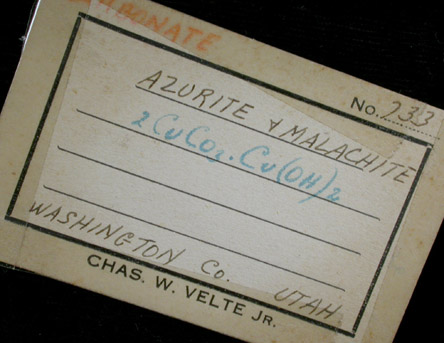 CARBONATE
No. 233
AZURITE & MALACHITE
2CuCO3·Cu(OH)2
WASHINGTON Co. UTAH
CHAS. W. VELTE JR.